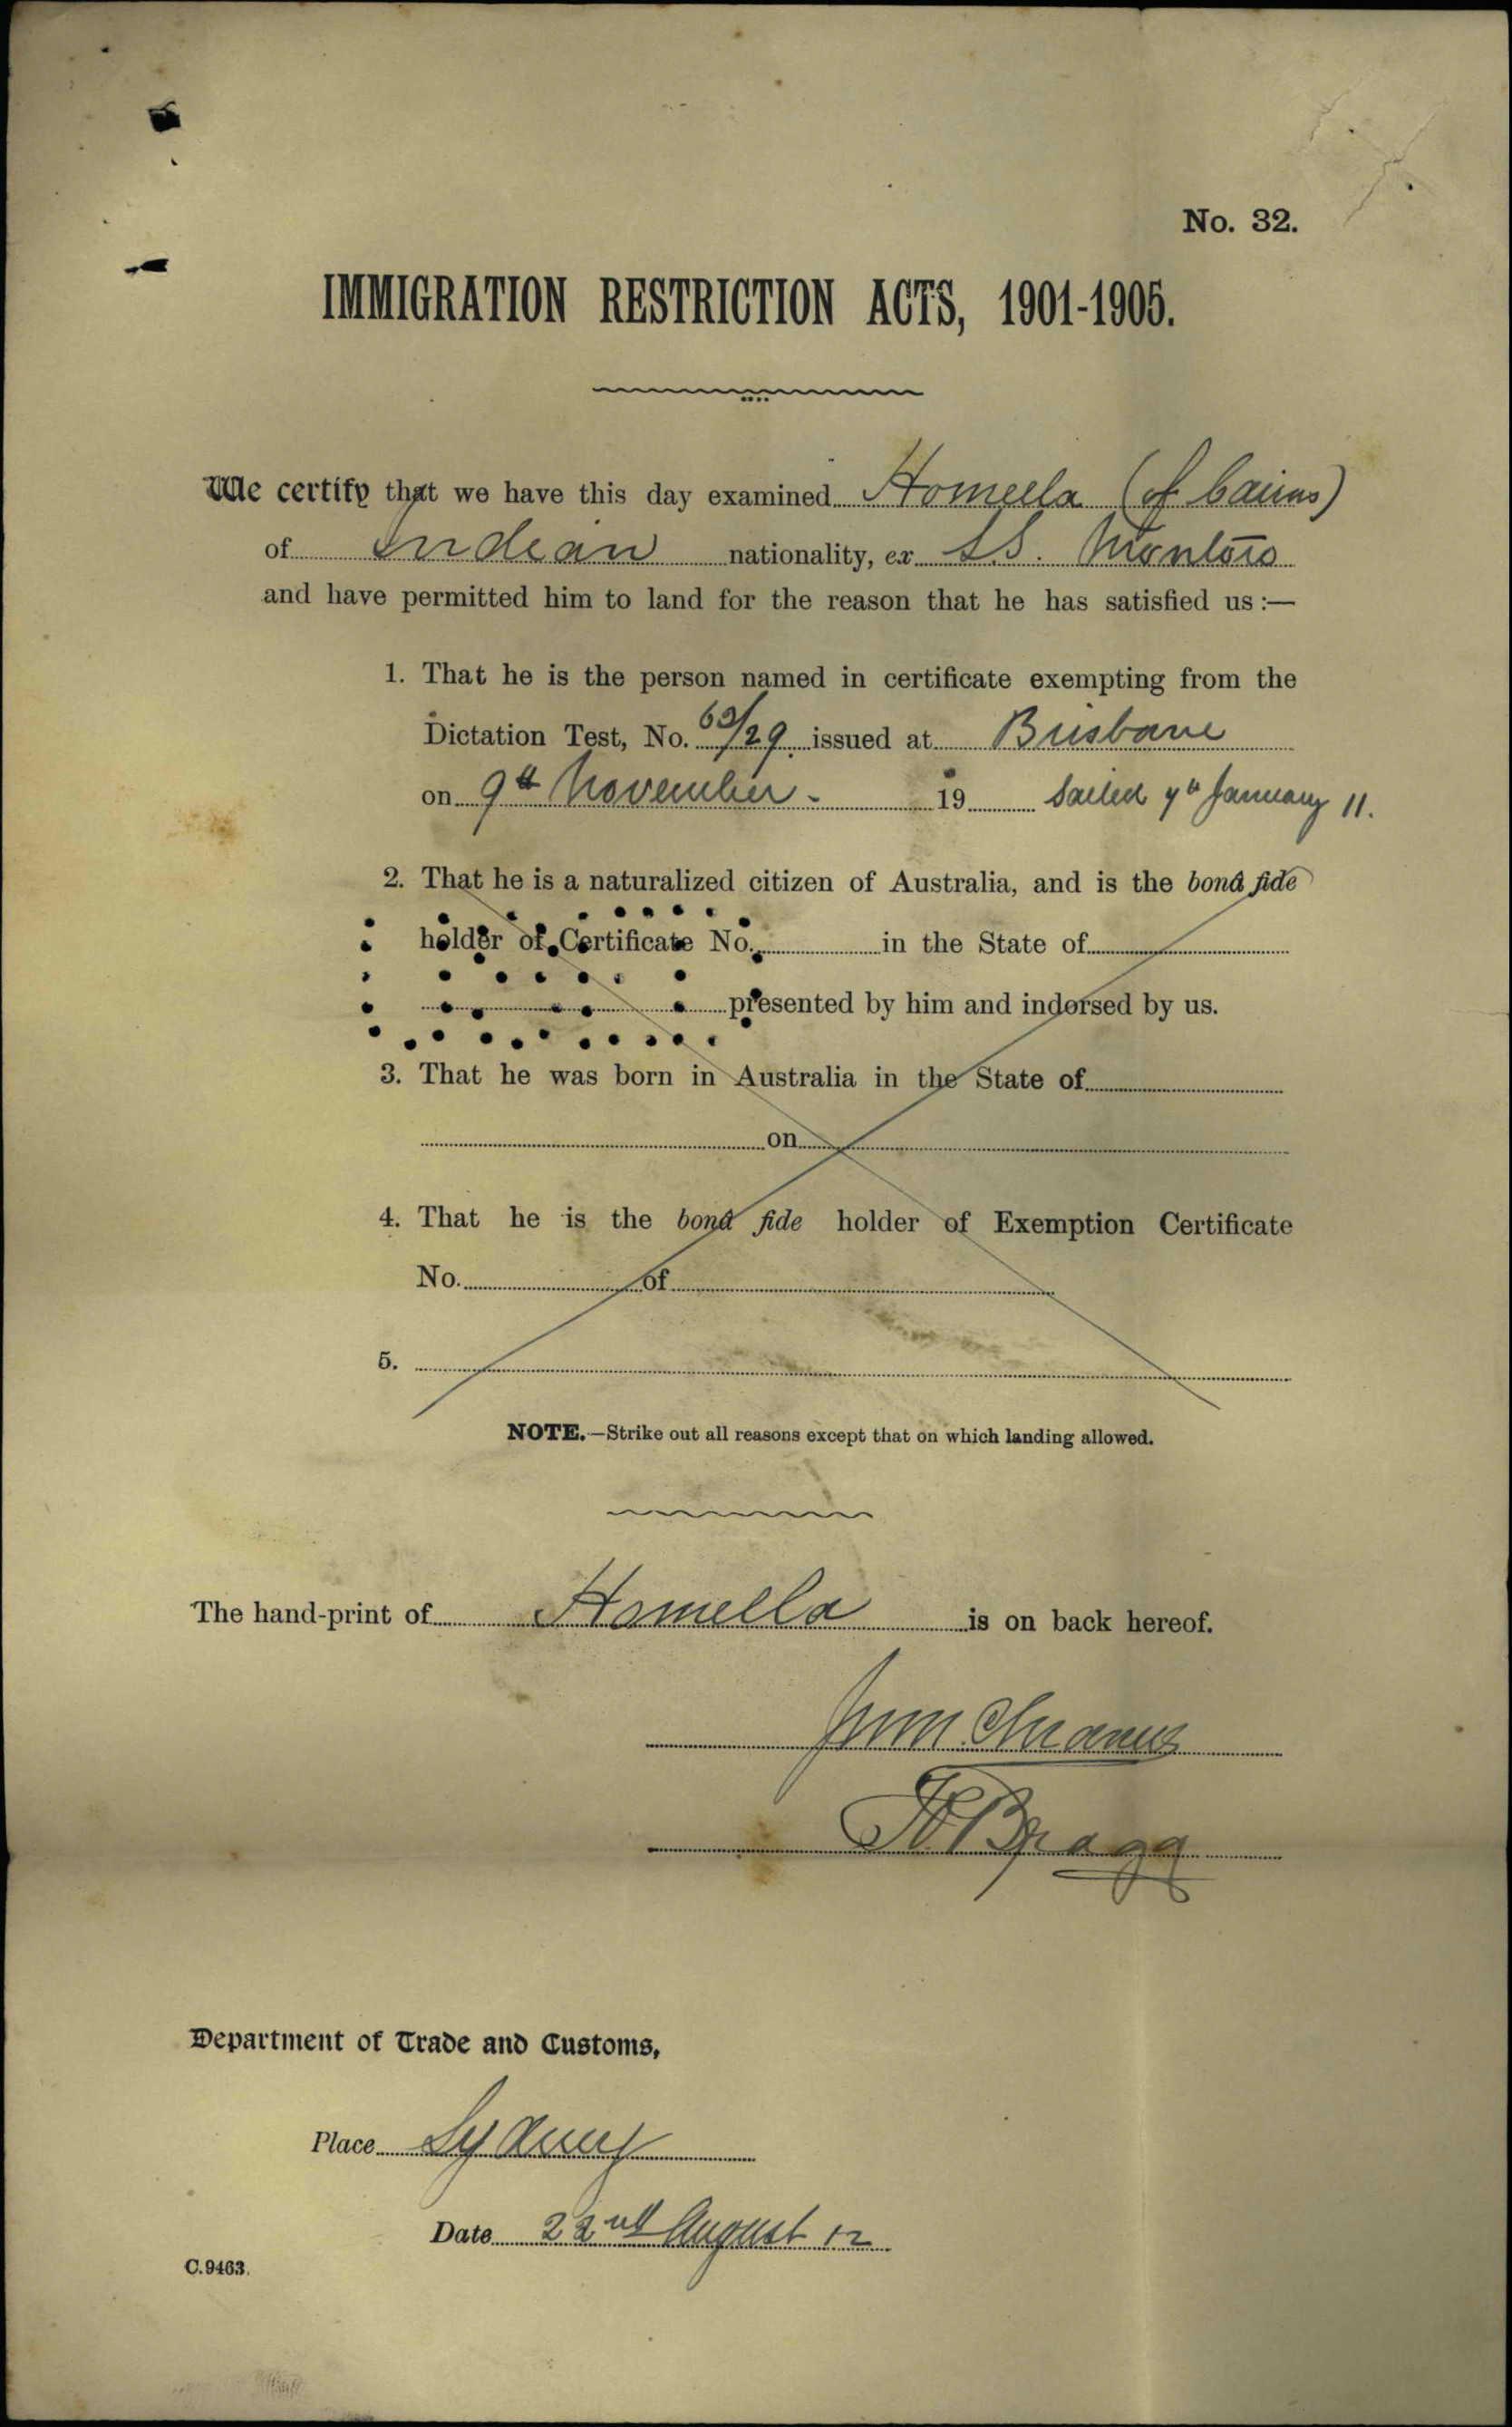 No. 32.
IMMIGRATION RESTRICTION ACTS, 1901-1905.
We certify that we have this day examined Homeela (of Cairns)
of Indian nationality, ex S.S. Montoro
and have permitted him to land for the reason that he has satisfied us :—
1. That he is the person named in certificate exempting from the
Dictation Test, No. /29 issued at Brisbane
on 9th November - 19 Sailed January 11.
2. That he is a naturalized citizen of Australia, and is the bonâ fide
holder of Certificate No. in the State of
presented by him and indorsed by us.
3. That he was born in Australia in the State of
on
4. That he is the bonâ fide holder of Exemption Certificate
No. of
5.
NOTE.—Strike out all reasons except that on which landing allowed.
The hand-print of Homella is on back hereof.
Bragg
Department of Trade and Customs,
Place Sydney
Date 22nd August 12
C.9463.